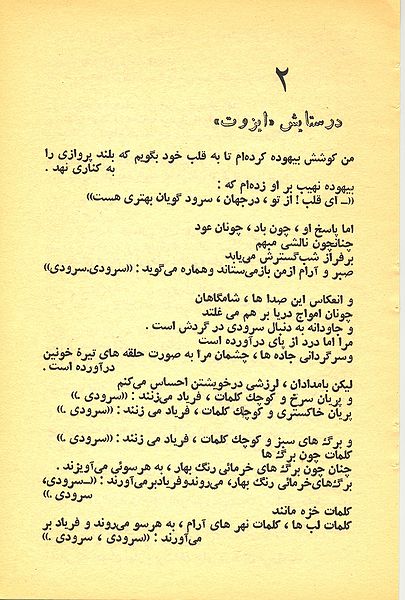 ۲
در ستایش «ایزوت»
من کوشش بیهوده کرده‌ام تا به قلب خود بگویم که بلند پروازی را
به کناری نهد .
بیهوده نهیب بر او زده‌ام که :
((ــ ای قلب ! از تو ، درجهان ، سرود گویان بهتری هست))
اما پاسخ او ، چون باد ، چونان عود
چنانچون نالشی مبهم
برفراز شب‌گسترش می‌یابد
صبر و آرام ازمن بازمی‌ستاند وهماره می‌گوید : ((سرودی.سرودی))
و انعکاس این صدا ها ، شامگاهان
چونان امواج دریا بر هم می غلتد
و جاودانه به دنبال سرودی در گردش است .
مرا اما درد از پای درآورده است
وسرگردانی جاده ها ، چشمان مرا به صورت حلقه های تیرهٔ خونین
درآورده است .
لیکن بامدادان ، لرزشی درخویشتن احساس می‌کنم
و پریان سرخ و کوچك کلمات ، فریاد می‌زنند : ((سرودی .))
پریان خاکستری و کوچك کلمات ، فریاد می زنند : ((سرودی .))
و برگ‌های سبز و کوچك کلمات ، فریاد می زنند : ((سرودی .))
کلمات چون برگ‌ ها
چنان چون برگ‌ های خرمائی رنگ بهار ، به هرسوئی می‌آویزند .
برگ‌های‌خرمائی رنگ بهار، می‌روندوفریادبرمی‌آورند : ((ــسرودی،
سرودی .))
کلمات خزه مانند
کلمات لب ها ، کلمات نهر های آرام ، به هرسو می‌روند و فریاد بر
می‌آورند : ((سرودی ، سرودی .))